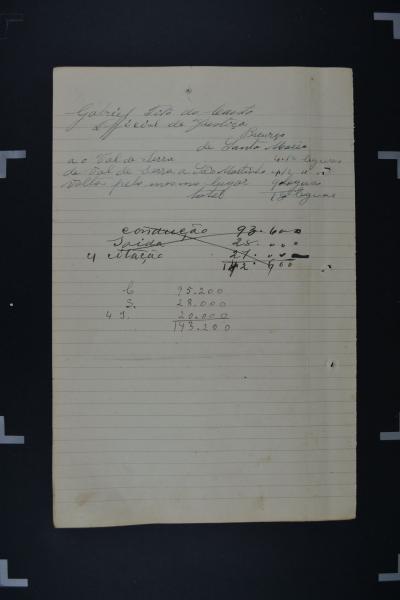 Gabriel Tito do Canto
Official de Justiça
Percurço
de Santa Maria
ao Val de Serra 4 1/2 leguas
de Val de Serra a São Martinho 4 1/2 "
Volta pelo mesmo lugar 9 leguas
total 18 leguas
Condução 93.600
Saida 28.000
4 Citação 21.000
142.600
C 95.200
S. 28.000
4 I. 20.000
143.200